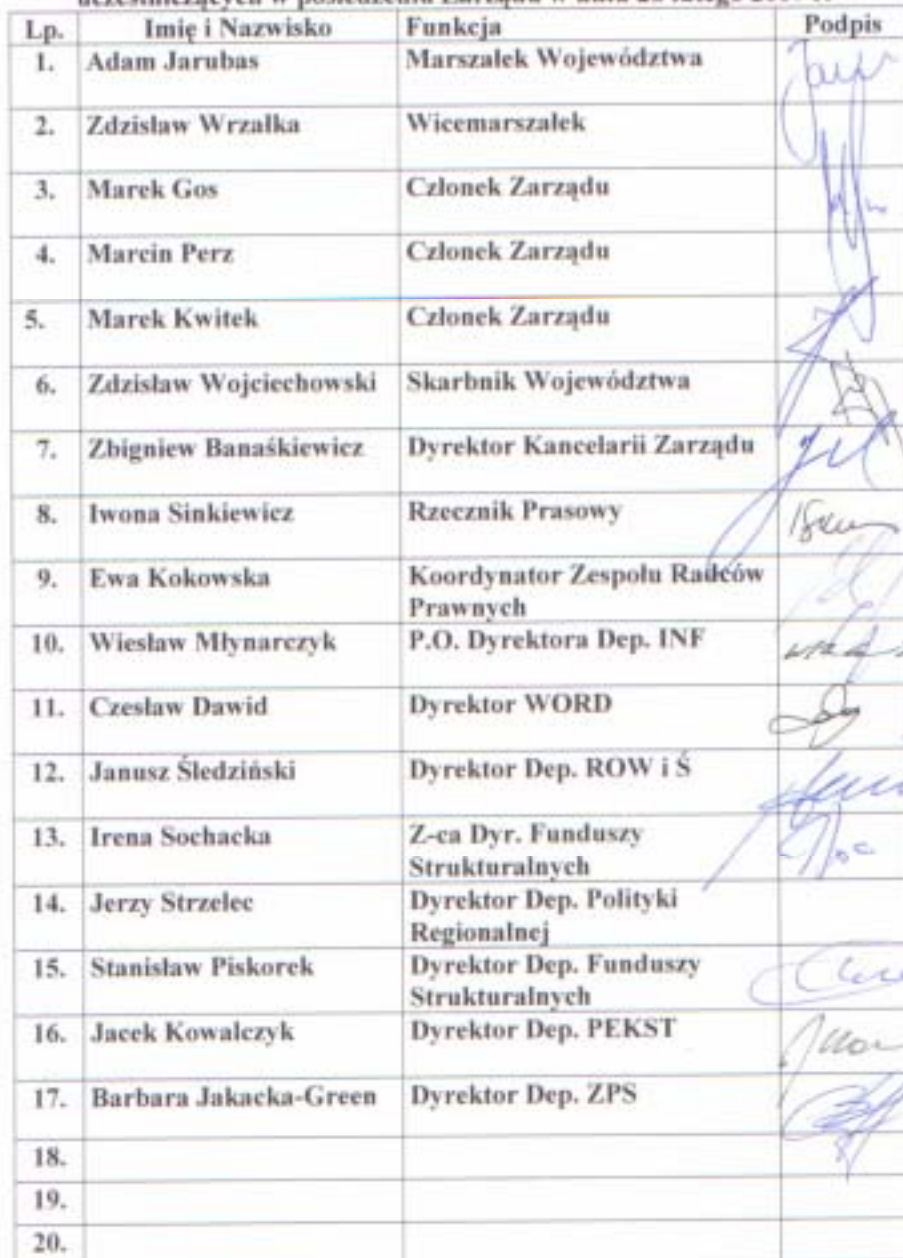 uczestniczących w posiedzeniu Zarządu w dniu
Lp. Imię i Nazwisko Funkcja Podpis
1. Adam Jarubas Marszałek Województwa
2. Zdzisław Wrzałka Wicemarszałek
3. Marek Gos Członek Zarządu
4. Marcin Perz Członek Zarządu
5. Marek Kwitek Członek Zarządu
6. Zdzisław Wojciechowski Skarbnik Województwa
7. Zbigniew Banaśkiewicz Dyrektor Kancelarii Zarządu
8. Iwona Sinkiewicz Rzecznik Prasowy
9. Ewa Kokowska Koordynator Zespołu Radców
Prawnych
10. Wiesław Młynarczyk P.O. Dyrektora Dep. INF
11. Czesław Dawid Dyrektor WORD
12. Janusz Śledziński Dyrektor Dep. ROW i Ś
13. Irena Sochacka Z-ca Dyr. Funduszy
Strukturalnych
14. Jerzy Strzelec Dyrektor Dep. Polityki
Regionalnej
15. Stanisław Piskorek Dyrektor Dep. Funduszy
Strukturalnych
16. Jacek Kowalczyk Dyrektor Dep. PEKST
17. Barbara Jakacka-Green Dyrektor Dep. ZPS
18.
19.
20.